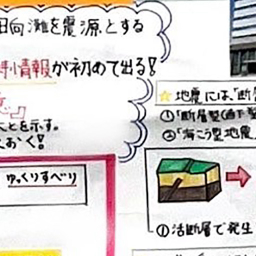 日向灘を震源とする
情報が初めて出る!
とを示す。
おく!
ゆっくりすべり
☆地震には、「断
①「断層型
②「海こう型地震
①活断層で発生